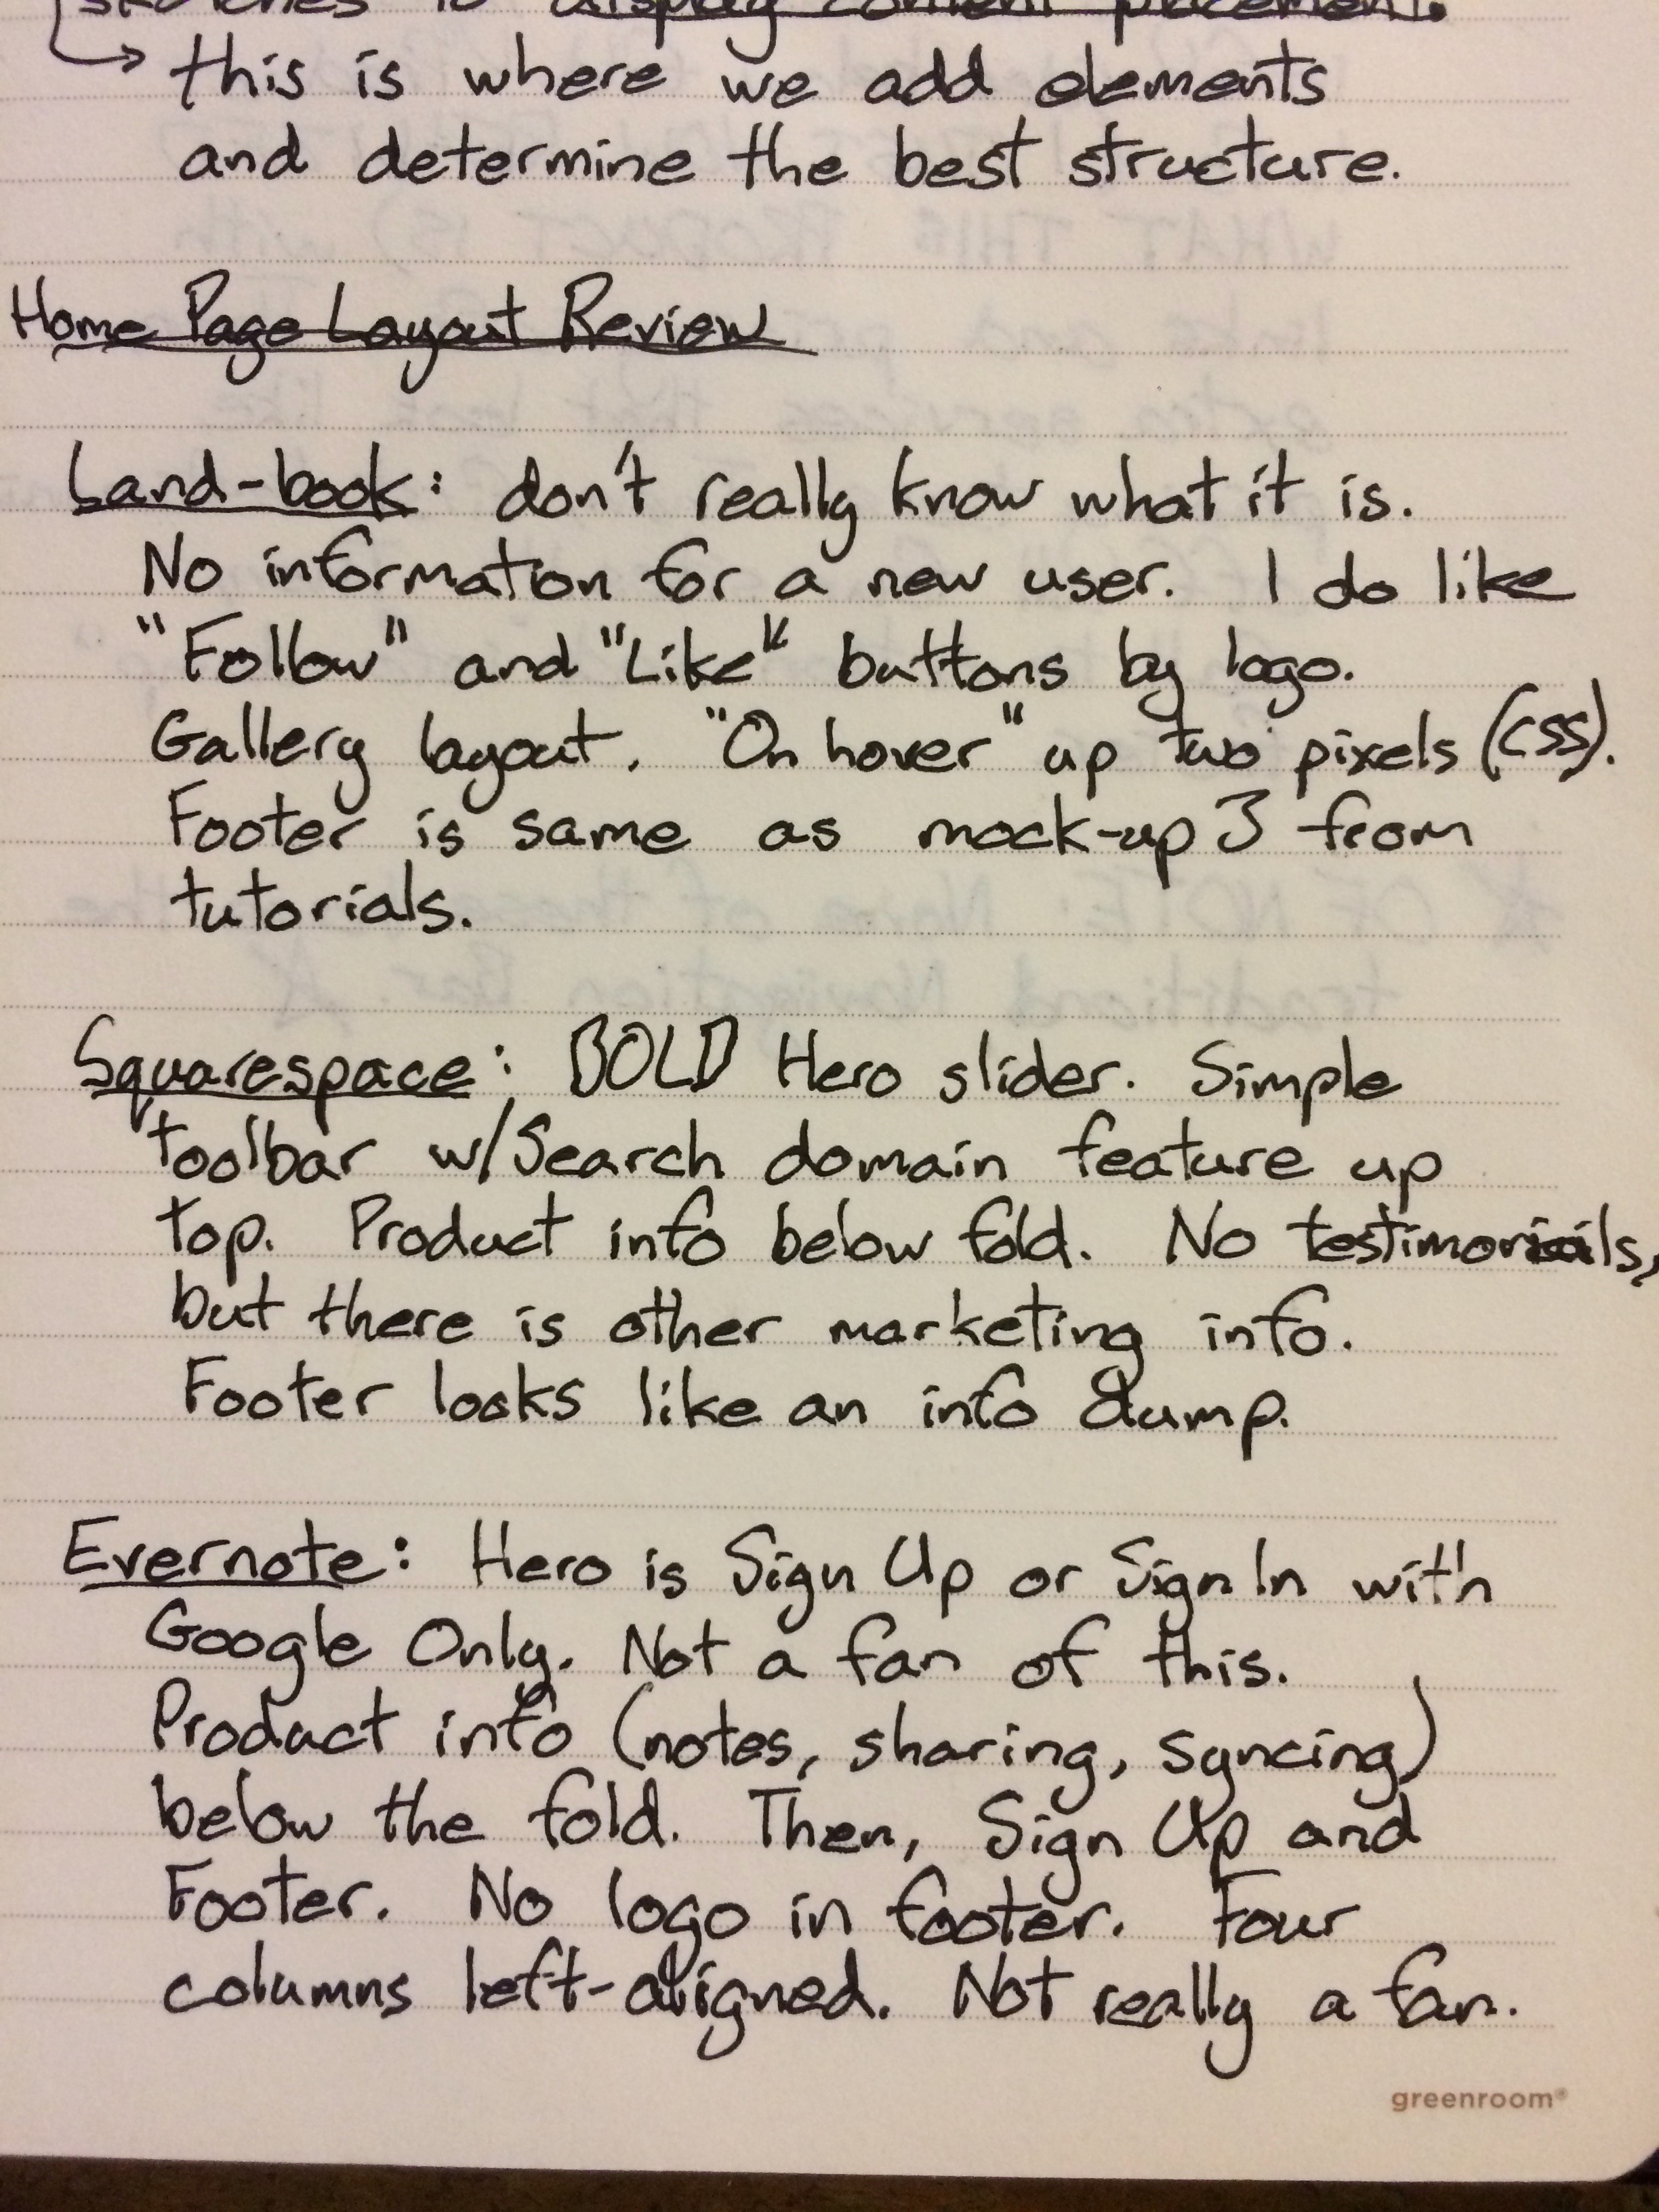 sketches to display content placement.
↳ this is where we add elements
and determine the best structure.
Home Page Layout Review
Land-book: don't really know what it is.
No information for a new user. I do like
"Follow" and "Like" buttons by logo.
Gallery layout. "On hover" up two pixels (CSS).
Footer is same as mock-up 3 from
tutorials.
Squarespace: BOLD Hero slider. Simple
toolbar w/Search domain feature up
top. Product info below fold. No testimonials,
but there is other marketing info.
Footer looks like an info dump.
Evernote: Hero is Sign Up or Sign In with
Google Only. Not a fan of this.
Product info (notes, sharing, syncing)
below the fold. Then, Sign Up and
Footer. No logo in footer. Four
columns left-aligned. Not really a fan.
greenroom®